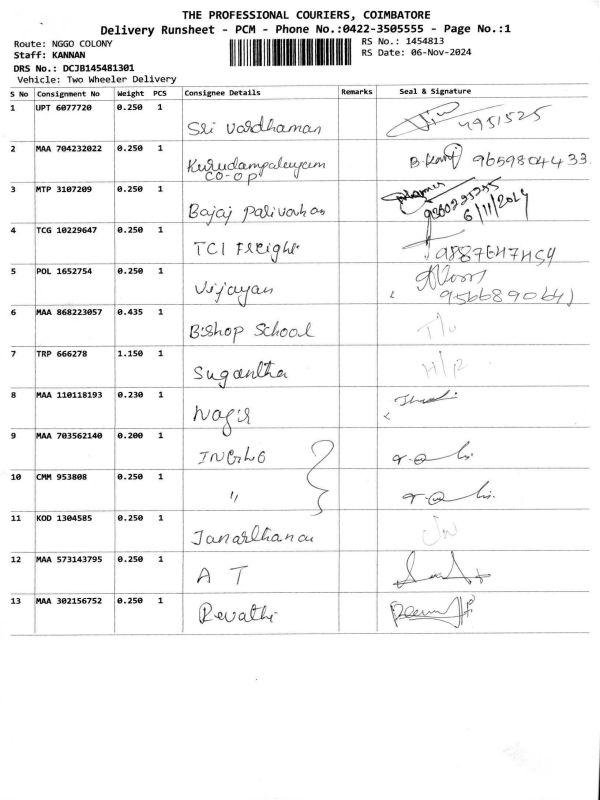 THE PROFESSIONAL COURIERS, COIMBATORE
Delivery Runsheet - PCM - Phone No.:0422-3505555 - Page No.:1
Route: NGGO COLONY
RS No.: 1454813
Staff: KANNAN
RS Date: 06-Nov-2024
DRS No.: DCJB145481301
Vehicle: Two Wheeler Delivery
S No Consignment No Weight PCS Consignee Details Remarks Seal & Signature
1 UPT 6077720 0.250 1
Sri Vardhaman 4951525
2 MAA 704232022 0.250 1
Kurudampalayam 9659804433
CO-OP
3 MTP 3107209 0.250 1
Bajaj
6/11/2024
4 TCG 10229647 0.250 1
TCI Freight
5 POL 1652754 0.250 1
Vijayan
6 MAA 868223057 0.435 1
Bishop School
7 TRP 666278 1.150 1
Sugantha
8 MAA 110118193 0.230 1
9 MAA 703562140 0.200 1
10 CMM 953808 0.250 1
"
11 KOD 1304585 0.250 1
12 MAA 573143795 0.250 1
A T
13 MAA 302156752 0.250 1
Revathi